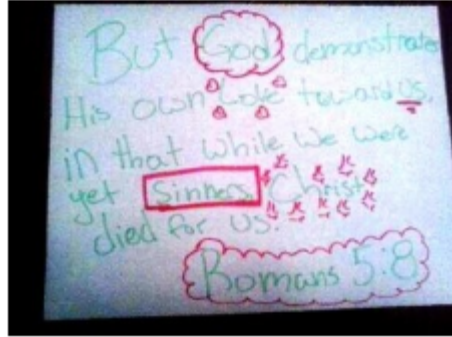 But God demonstrates
His own Love toward us,
in that while we were
yet Sinners Christ
died for us.
Romans 5:8